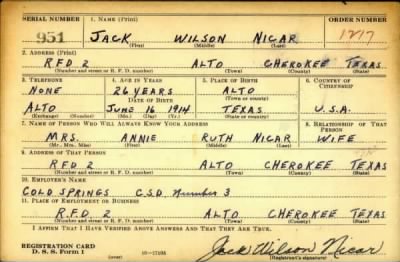 SERIAL NUMBER 1. NAME (Print) ORDER NUMBER
951 JACK WILSON NICAR 1217
(First) (Middle) (Last)
2. ADDRESS (Print)
RFD 2 ALTO CHEROKEE TEXAS
(Number and street or R. F. D. number) (Town) (County) (State)
3. TELEPHONE 4. AGE IN YEARS 5. PLACE OF BIRTH 6. COUNTRY OF CITIZENSHIP
NONE 26 YEARS ALTO
DATE OF BIRTH (Town or county)
ALTO JUNE 16 1914 TEXAS U.S.A.
(Exchange) (Number) (Mo.) (Day) (Yr.) (State or country)
7. NAME OF PERSON WHO WILL ALWAYS KNOW YOUR ADDRESS 8. RELATIONSHIP OF THAT PERSON
MRS. ANNIE RUTH NICAR WIFE
(Mr., Mrs., Miss) (First) (Middle) (Last)
9. ADDRESS OF THAT PERSON
RFD 2 ALTO CHEROKEE TEXAS
(Number and street or R. F. D. number) (Town) (County) (State)
10. EMPLOYER'S NAME
COLD SPRINGS C.S.D. Number 3
11. PLACE OF EMPLOYMENT OR BUSINESS
R.F.D. 2 ALTO CHEROKEE TEXAS
(Number and street or R. F. D. number) (Town) (County) (State)
I AFFIRM THAT I HAVE VERIFIED ABOVE ANSWERS AND THAT THEY ARE TRUE.
REGISTRATION CARD
D. S. S. Form 1 (over) 16—17105 Jack Wilson Nicar
(Registrant's signature)